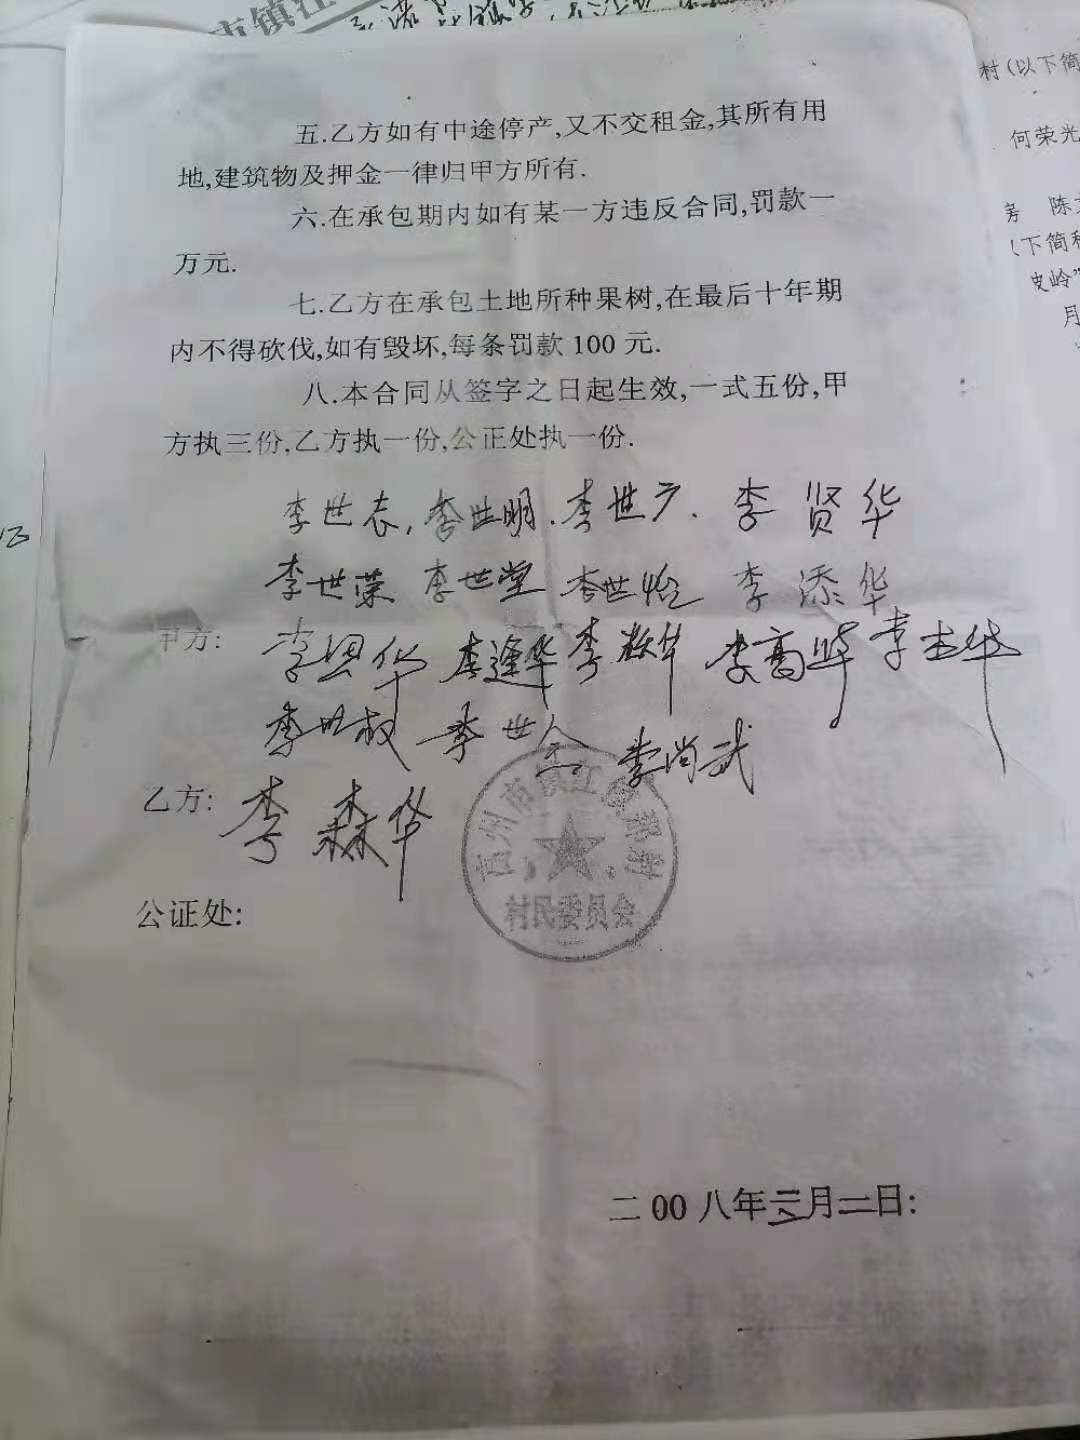 市镇江
五.乙方如有中途停产,又不交租金,其所有用
地,建筑物及押金一律归甲方所有.
六.在承包期内如有某一方违反合同,罚款一
万元.
七.乙方在承包土地所种果树,在最后十年期
内不得砍伐,如有毁坏,每条罚款 100 元.
八.本合同从签字之日起生效,一式五份,甲
方执三份,乙方执一份,公正处执一份.
李世表,李世明.李世广.李贤华
李世荣 李世堂 李世怡 李添华
甲方: 李恩华 李逢华 李 李高华 李志华
李世权 李世 李尚武
乙方: 李森华
州市镇江 村
村民委员会
公证处:
二00八年三月二日:
村(以下简
何荣光
陈
以下简称
皮岭"
月